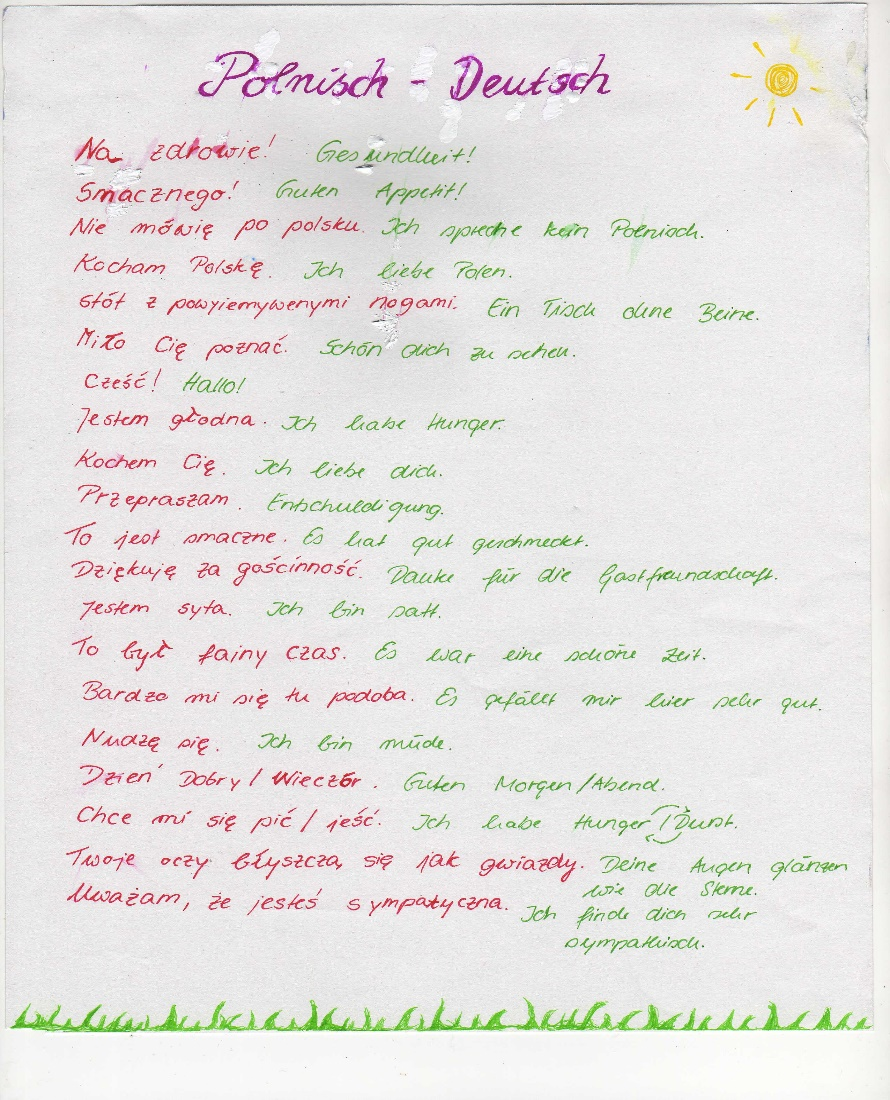 Polnisch - Deutsch
Na zdrowie! Gesundheit!
Smacznego! Guten Appetit!
Nie mówię po polsku. Ich spreche kein Polnisch.
Kocham Polskę. Ich liebe Polen.
stół z powyiemywenymi nogami. Ein Tisch ohne Beine.
Miło Cię poznać. Schön dich zu sehen.
Cześć! Hallo!
Jestem głodna. Ich habe Hunger.
Kochem Cię. Ich liebe dich.
Przepraszam. Entschuldigung.
To jest smaczne. Es hat gut geschmeckt.
Dziękuję za gościnność. Danke für die Gastfreundschaft.
Jestem syta. Ich bin satt.
To był fainy czas. Es war eine schöne Zeit.
Bardzo mi się tu podoba. Es gefällt mir hier sehr gut.
Nudzę się. Ich bin müde.
Dzień Dobry / Wieczór. Guten Morgen / Abend.
Chce mi się pić / jeść. Ich habe Hunger / Durst.
Twoje oczy błyszczą się jak gwiazdy. Deine Augen glänzen
wie die Sterne.
Uważam, że jesteś sympatyczna. Ich finde dich sehr
sympathisch.